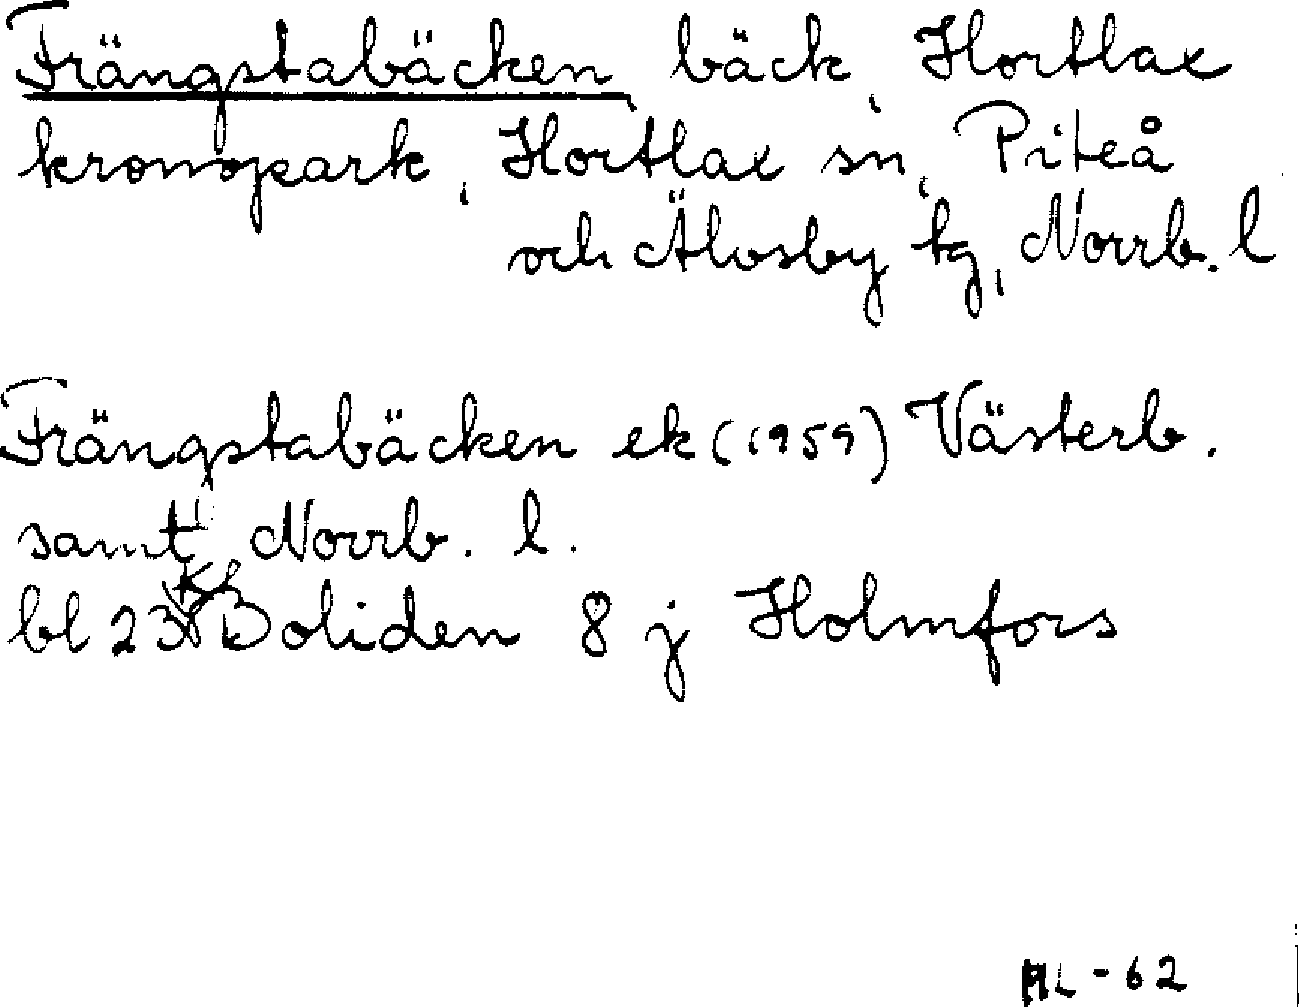 Frängstabäcken, bäck, Hortlax
kronopark, Hortlax sn, Piteå
och Älvsby tg, Norrb. l
Frängstabäcken ek (1959) Västerb.
samt Norrb. l.
bl 23 K Boliden 8 j Holmfors
HL - 62